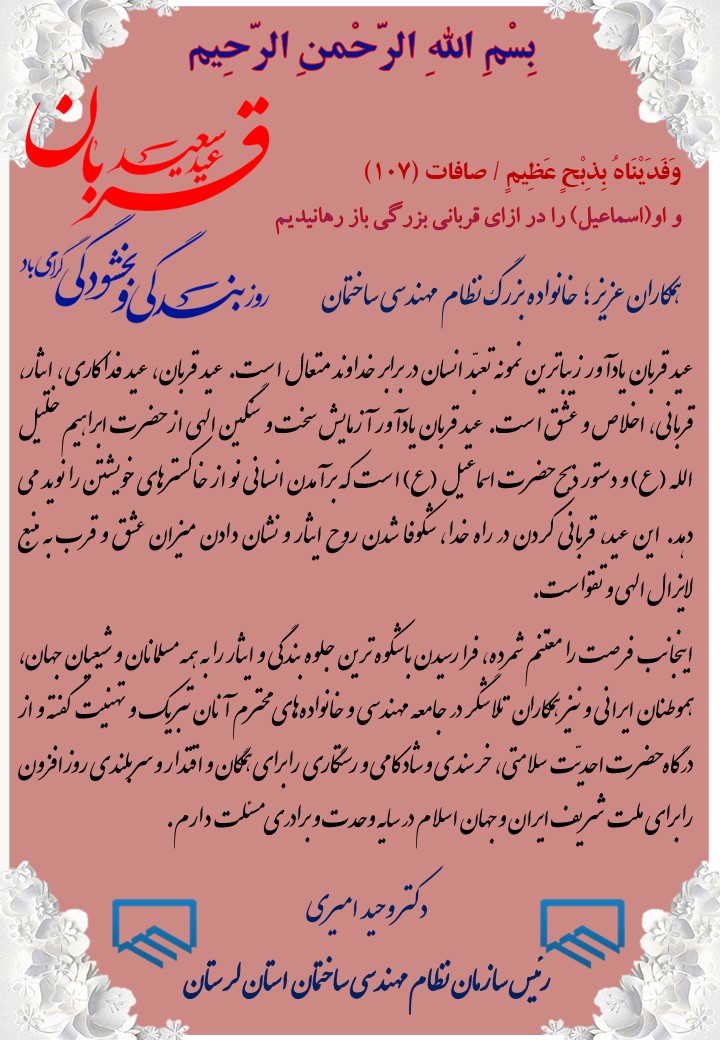 بِسْمِ اللهِ الرّحْمنِ الرّحِیم
عید سعید قربان
وَفَدَيْنَاهُ بِذِبْحٍ عَظِيمٍ / صافات (۱۰۷)
و او(اسماعیل) را در ازای قربانی بزرگی باز رهانیدیم
روز بندگی و بخشودگی گرامی باد
همکاران عزیز؛ خانواده بزرگ نظام مهندسی ساختمان
عید قربان یادآور زیباترین نمونه تعبّد انسان در برابر خداوند متعال است. عید قربان، عید فداکاری، ایثار،
قربانی، اخلاص و عشق است. عید قربان یادآور آزمایش سخت و سنگین الهی از حضرت ابراهیم خلیل
الله (ع) و دستور ذبح حضرت اسماعیل (ع) است که برآمدن انسانی نو از خاکسترهای خویشتن را نوید می
دهد. این عید، قربانی کردن در راه خدا، شکوفا شدن روح ایثار و نشان دادن میزان عشق و قرب به منبع
لایزال الهی و تقواست.
اینجانب فرصت را مغتنم شمرده، فرا رسیدن باشکوه ترین جلوه بندگی و ایثار را به همه مسلمانان و شیعیان جهان،
هموطنان ایرانی و نیز همکاران تلاشگر در جامعه مهندسی و خانواده های محترم آنان تبریک و تهنیت گفته و از
درگاه حضرت احدیّت سلامتی، خرسندی و شادکامی و رستگاری را برای همگان و اقتدار و سربلندی روزافزون
را برای ملت شریف ایران و جهان اسلام در سایه وحدت و برادری مسئلت دارم.
دکتر وحید امیری
رئیس سازمان نظام مهندسی ساختمان استان لرستان